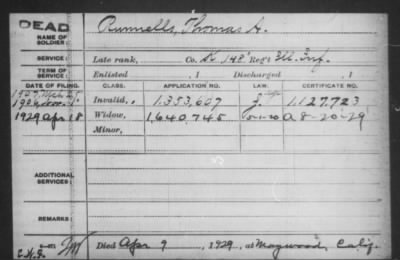 DEAD
NAME OF SOLDIER: Runnells, Thomas A.
SERVICE: Late rank, Co. K 148" Reg't Ill. Inf.
TERM OF SERVICE: Enlisted , 1 Discharged , 1
DATE OF FILING. CLASS. APPLICATION NO. LAW. CERTIFICATE NO.
Invalid, 1.353,607 1.127.723
1929 Apr 18 Widow, 1,640,745 A 8-20-29
Minor,
ADDITIONAL SERVICES:
REMARKS:
Died Apr 9 , 1929, at Maywood, Calif.